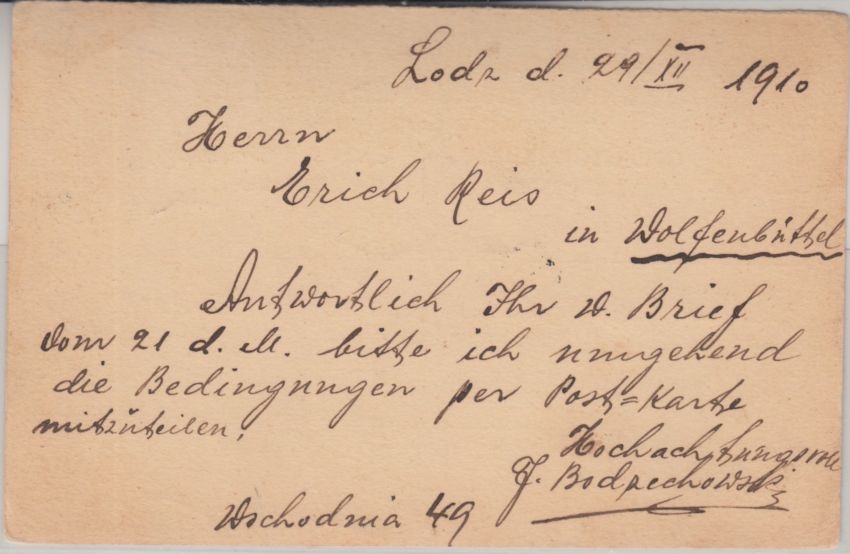 Lodz d. 29/XII 1910
Herrn
Erich Reis
in Wolfenbüttel
Antwortlich Ihr w. Brief
vom 21 d. M. bitte ich umgehend
die Bedingungen per Post=Karte
mitzüteilen.
Hochachtungsvoll
J. Bodzechowski
Wschodnia 49